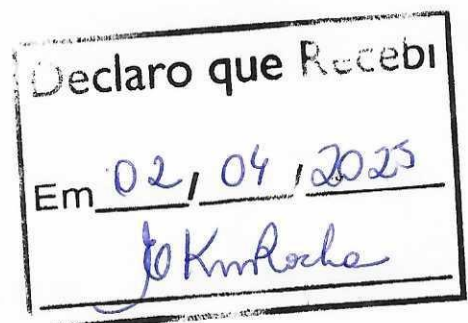 Declaro que Recebi
Em 02, 04, 2025